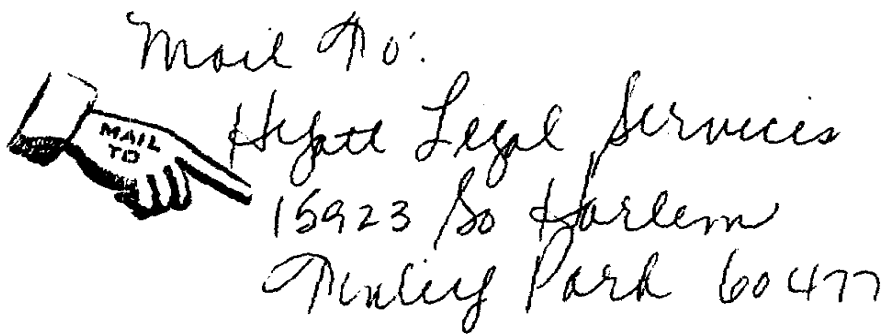 Mail To:
MAIL
TO
Hyatt Legal Services
15923 So Harlem
Tinley Park 60477